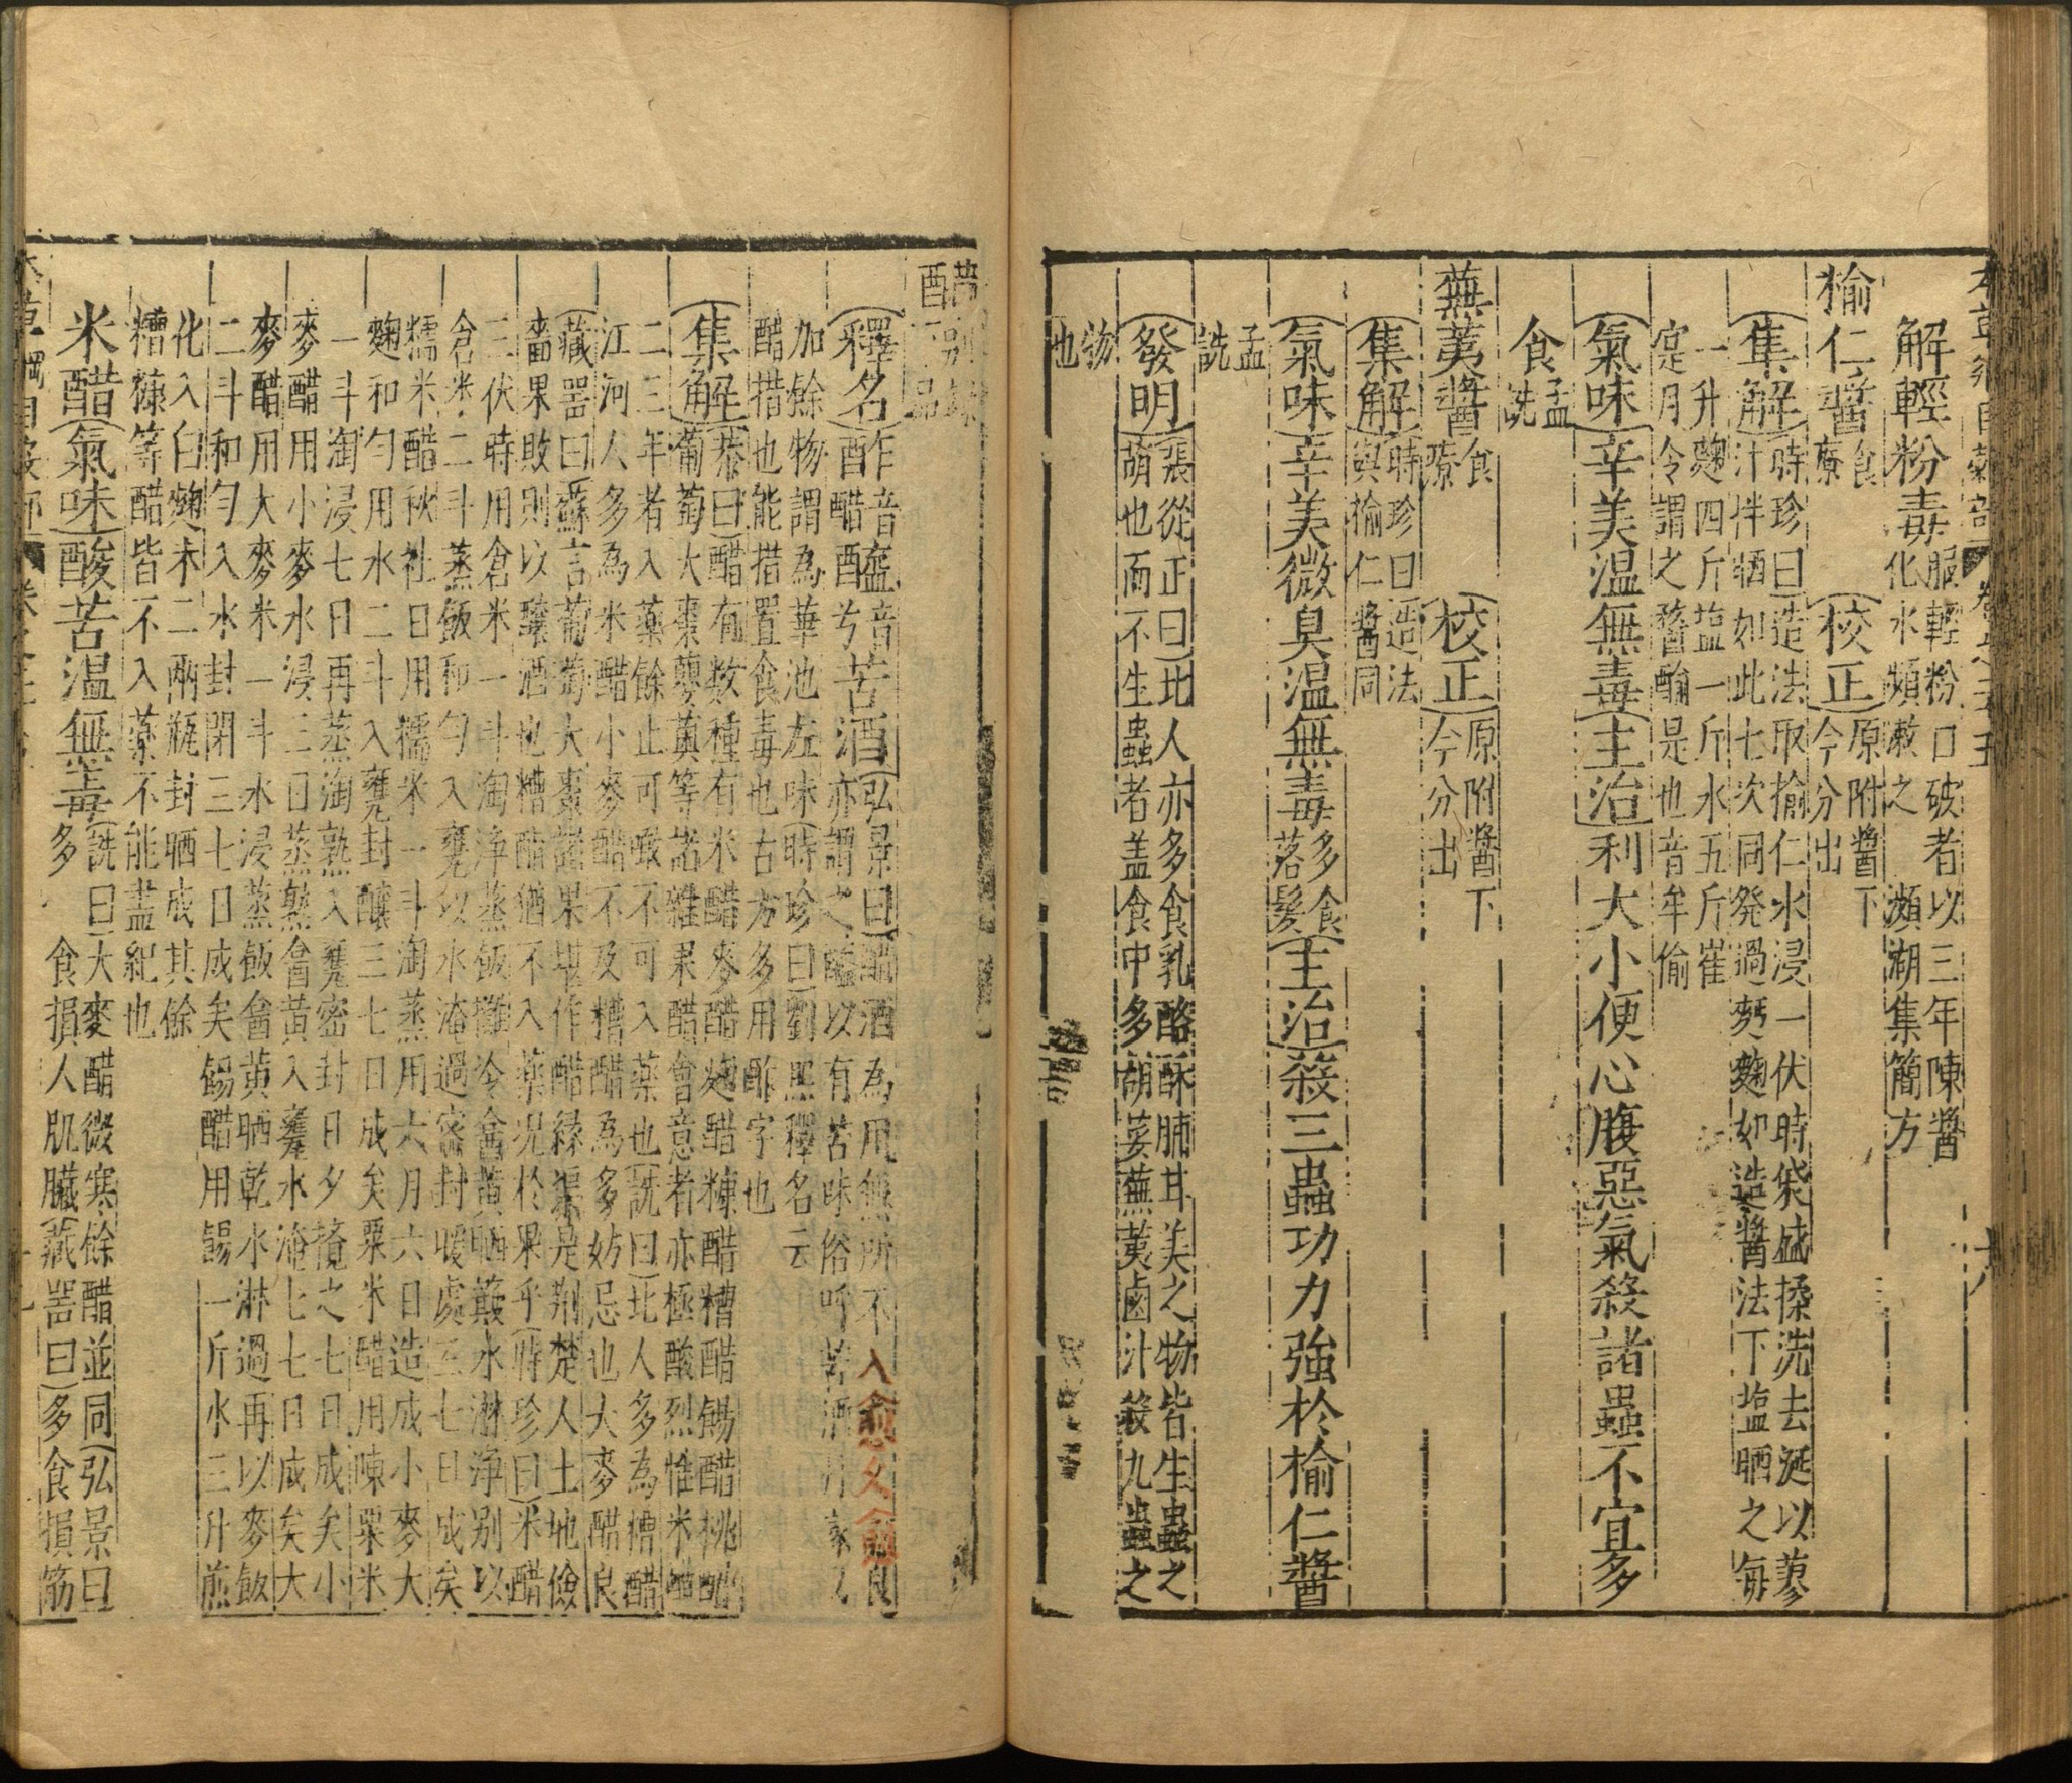 解輕粉毒 服輕粉口破者以三年陳醬
化水頻漱之 瀕湖集簡方
榆仁醬 食
療 校正 原附醬下
今分出
集解 時珍曰造法取榆仁水浸一伏時袋盛揉洗去涎以蓼
汁拌晒如此七次同発過麪麴如造醬法下塩晒之每
一升麴四斤塩一斤水五斤崔
寔月令謂之 是也音牟偷
氣味 辛美溫無毒 主治 利大小便心腹惡氣殺諸蟲不宜多
食 孟
詵
蕪荑醬 食
療 校正 原附醬下
今分出
集解 時珍曰造法
與榆仁醬同
氣味 辛美微臭溫無毒 多食
落髮 主治 殺三蟲功力強於榆仁醬
孟
詵
發明 張從正曰北人亦多食乳酪酥脯甘美之物皆生蟲之
萌也而不生蟲者盖食中多胡荽蕪荑鹵汁殺九蟲之
物
也
醋 別錄
下品
釋名 酢 音醋 醯 音兮 苦酒 弘景曰醋酒為用無所不入愈久愈良
亦謂之醯以有苦味俗呼苦酒丹家又
加餘物謂為華池左味時珍曰劉熙釋名云
醋措也能措置食毒也古方多用酢字也
集解 恭曰醋有數種有米醋麥醋麴醋糠醋糟醋餳醋桃醋
葡萄大棗蘡薁等諸雜果醋會意者亦極酸烈惟米醋
二三年者入藥餘止可啖不可入藥也詵曰北人多為糟醋
江河人多為米醋小麥醋不及糟醋為多妨忌也大麥醋良
藏器曰蘇言葡萄大棗諸果堪作醋緣渠是荆楚人土地儉
嗇果敗則以釀酒也糟醋猶不入藥況於果乎時珍曰米醋
三伏時用倉米一斗淘淨蒸飯攤冷盦黃晒簸水淋淨別以
倉米二斗蒸飯和勻入甕以水淹過密封暖處三七日成矣
糯米醋秋社日用糯米一斗淘蒸用六月六日造成小麥大
麴和勻用水二斗入甕封釀三七日成矣粟米醋用陳粟米
一斗淘浸七日再蒸淘熟入甕密封日夕攪之七日成矣小
麥醋用小麥水浸三日蒸熟盦黃入甕水淹七七日成矣大
麥醋用大麥米一斗水浸蒸飯盦黃晒乾水淋過再以麥飯
二斗和勻入水封閉三七日成矣餳醋用餳一斤水三升煎
化入白麴末二兩瓶封晒成其餘
糟糠等醋皆不入藥不能盡紀也
米醋 氣味 酸苦溫無毒 詵曰大麥醋微寒餘醋並同弘景曰
多食損人肌臟藏器曰多食損筋